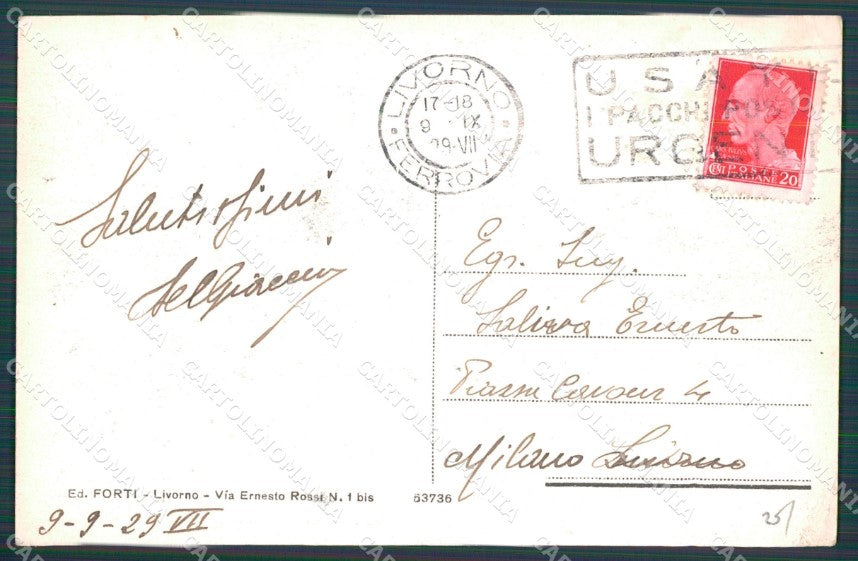 LIVORNO
17-18
9 · IX
29·VII
FERROVIA
USATE
I PACCHI POS
URGEN
CENT POSTE ITALIANE 20
Saluti
Delgiaccio
Egr. Sig.
Ernesto
Piazza Cavour 4
Milano Livorno
Ed. FORTI - Livorno - Via Ernesto Rossi N. 1 bis 53736
9-9-29 VII
25/
CARTOLINOMANIA